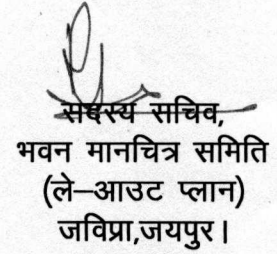 सदस्य सचिव,
भवन मानचित्र समिति
(ले–आउट प्लान)
जविप्रा,जयपुर।